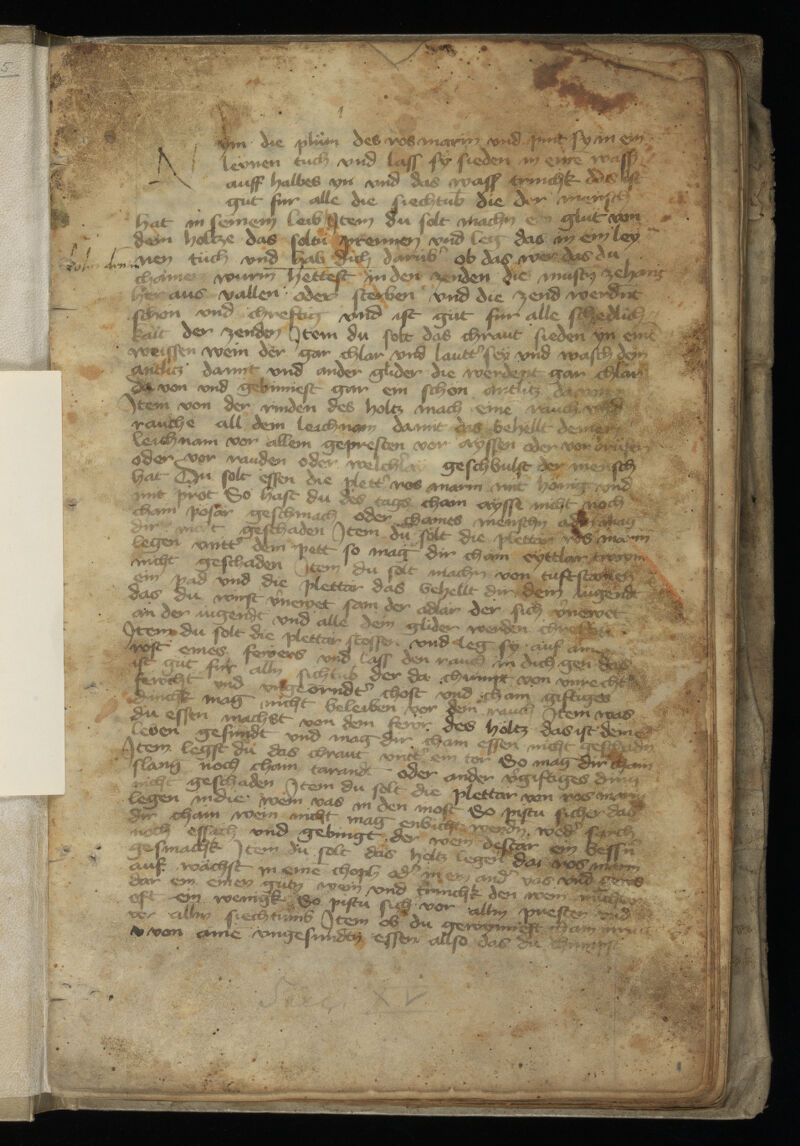 1
Nym die plüm des ros marin vnd pint sy in ein
leynen tuch vnd lass sy sieden in eine wass
auff halbes yn vnd das wass trinchk das ist
gut für alle die siechtub die der mensch
hat in seinem leib Item du solt machn ein glut von
dem holtze das soltu prennen vnd leg das in ein ley
nen tuch vnd hab dich darüb ob das wer das du
chaine wurm hettest in den zenden die mustn zehant
her aus vallen oder sterben vnd die zend werdnt
schon vnd chreftig vnd ist gut für alle schedlich
kalt der zenden Item du solt das chraut sieden yn eine
weissen wein der gar chlar vnd lautt sey vnd wasch dein
antlitz damit vnd ander glider die werdent gar chlar
da von vnd gebinnest gar ein schon antlitz da von
Item von der rinden des holtz mach eine rauch vnd
rauche all dem leichnam damit das behellt deinen
leichnam vor allem gepresten vor ayssen oder vor drüsen
oder vor rauden oder welchlay geschbulst der mensch
hat Du solt essen die plett ros marin mit honig vnd
mit prot So hast du des tags cham ayss nicht noch
cham posar geschmach oder chames menschn adn mag
dir nicht geschaden Item du solt die plettar ros marin
legen vntt dem pett so mag dir cham eyttlar trawm
nicht geschaden Item du solt machn von
ein pad vnd die plettar das behellt dir dem iugendt
das du wirst vnewet sam der adlar der sich vnewet
an der iugendt vnd alle dem glider werden
Item du solt die plettar stossen vnd leg sy auf ain
rost eines fewers vnd lass den rauch in dich gen das
ist gut für alln sichtub der da chumpt von vnrecht
feucht vnd vngeorndt chost vnd cham giftiges
dinchk mag nicht beleiben vor dem rauch Item was
du essen machst von dem fewr des holtz das ist deine
leben gesundt vnd mag dir cham essen nicht geschadn
Item legst du das chraut vntt ein tor So mag dir cham
slang noch cham tarandt oder ander vgiftiges ding
nicht geschaden Item du solt die plettar von ros marin
legen indie wein vas in den most So pistu sicher das
dir cham wein nicht mag enbicht werdn wed
noch essach vnd gebingt der wein destar ein bessn
gesmachk Item du solt das holtz legen dar ros marin
auf wachst in eine choph od in ein and vas vnd geus
dar ein einen gutn wein vnd trinchk den wein
oft ein wenigk So pistu sich vor alln presten vnd
vor alln siechtumb Item ob du gewynnest
v von aine vngesundtn essen allso das du chumpst
Saec. XV